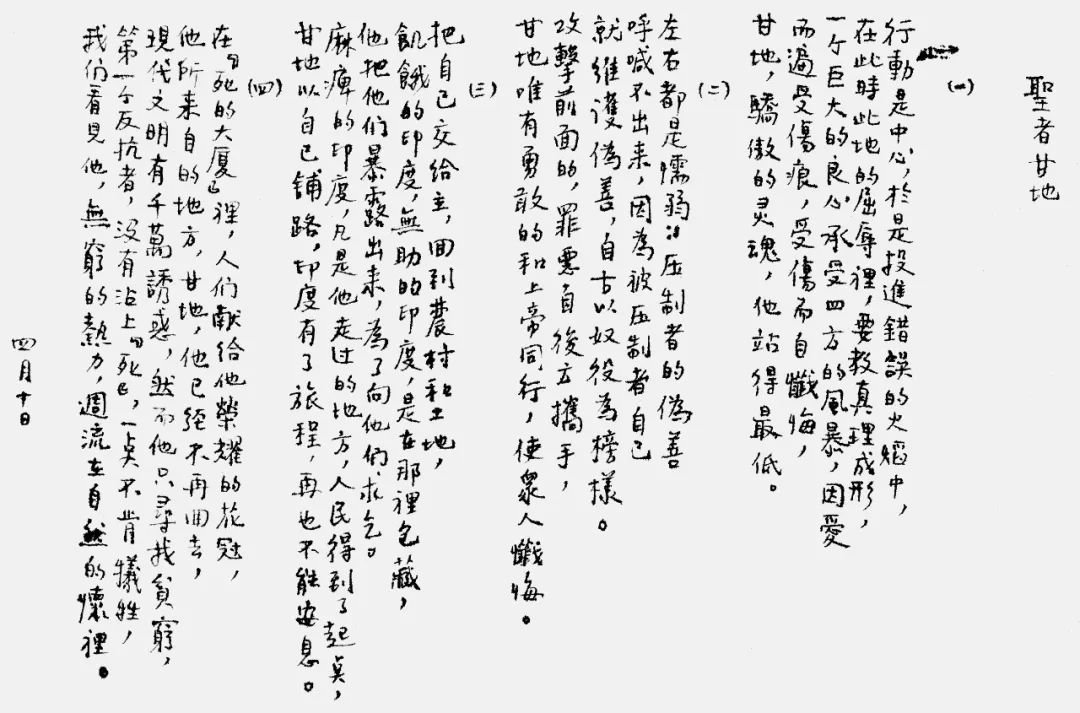 聖者甘地
(一)
行動是中心，於是投進錯誤的火焰中，
在此時此地的屈辱裡，要教真理成形，
一个巨大的良心承受四方的風暴，因愛
而遍受傷痕，受傷而自懺悔，
甘地，驕傲的灵魂，他站得最低。
(二)
左右都是懦弱：压制者的偽善
呼喊不出来，因為被压制者自己
就維護偽善，自古以奴役為榜樣。
攻擊前面的，罪惡，自後方攜手，
甘地唯有勇敢的和上帝同行，使眾人懺悔。
(三)
把自己交给主，回到農村和土地，
飢餓的印度，無助的印度，是在那裡包藏，
他把他们暴露出来，為了向他們求乞。
麻痺的印度，凡是他走过的地方，人民得到了起点，
甘地以自己舖路，印度有了旅程，再也不能安息。
(四)
在『死的大廈』裡，人们献给他榮耀的花冠，
他所来自的地方，甘地，他已经不再回去，
現代文明有千萬誘惑，然而他只尋找貧窮，
第一个反抗者，没有沾上『死』，一点不肯犧牲，
我们看見他，無窮的熱力，週流在自然的懷裡。
四月十日